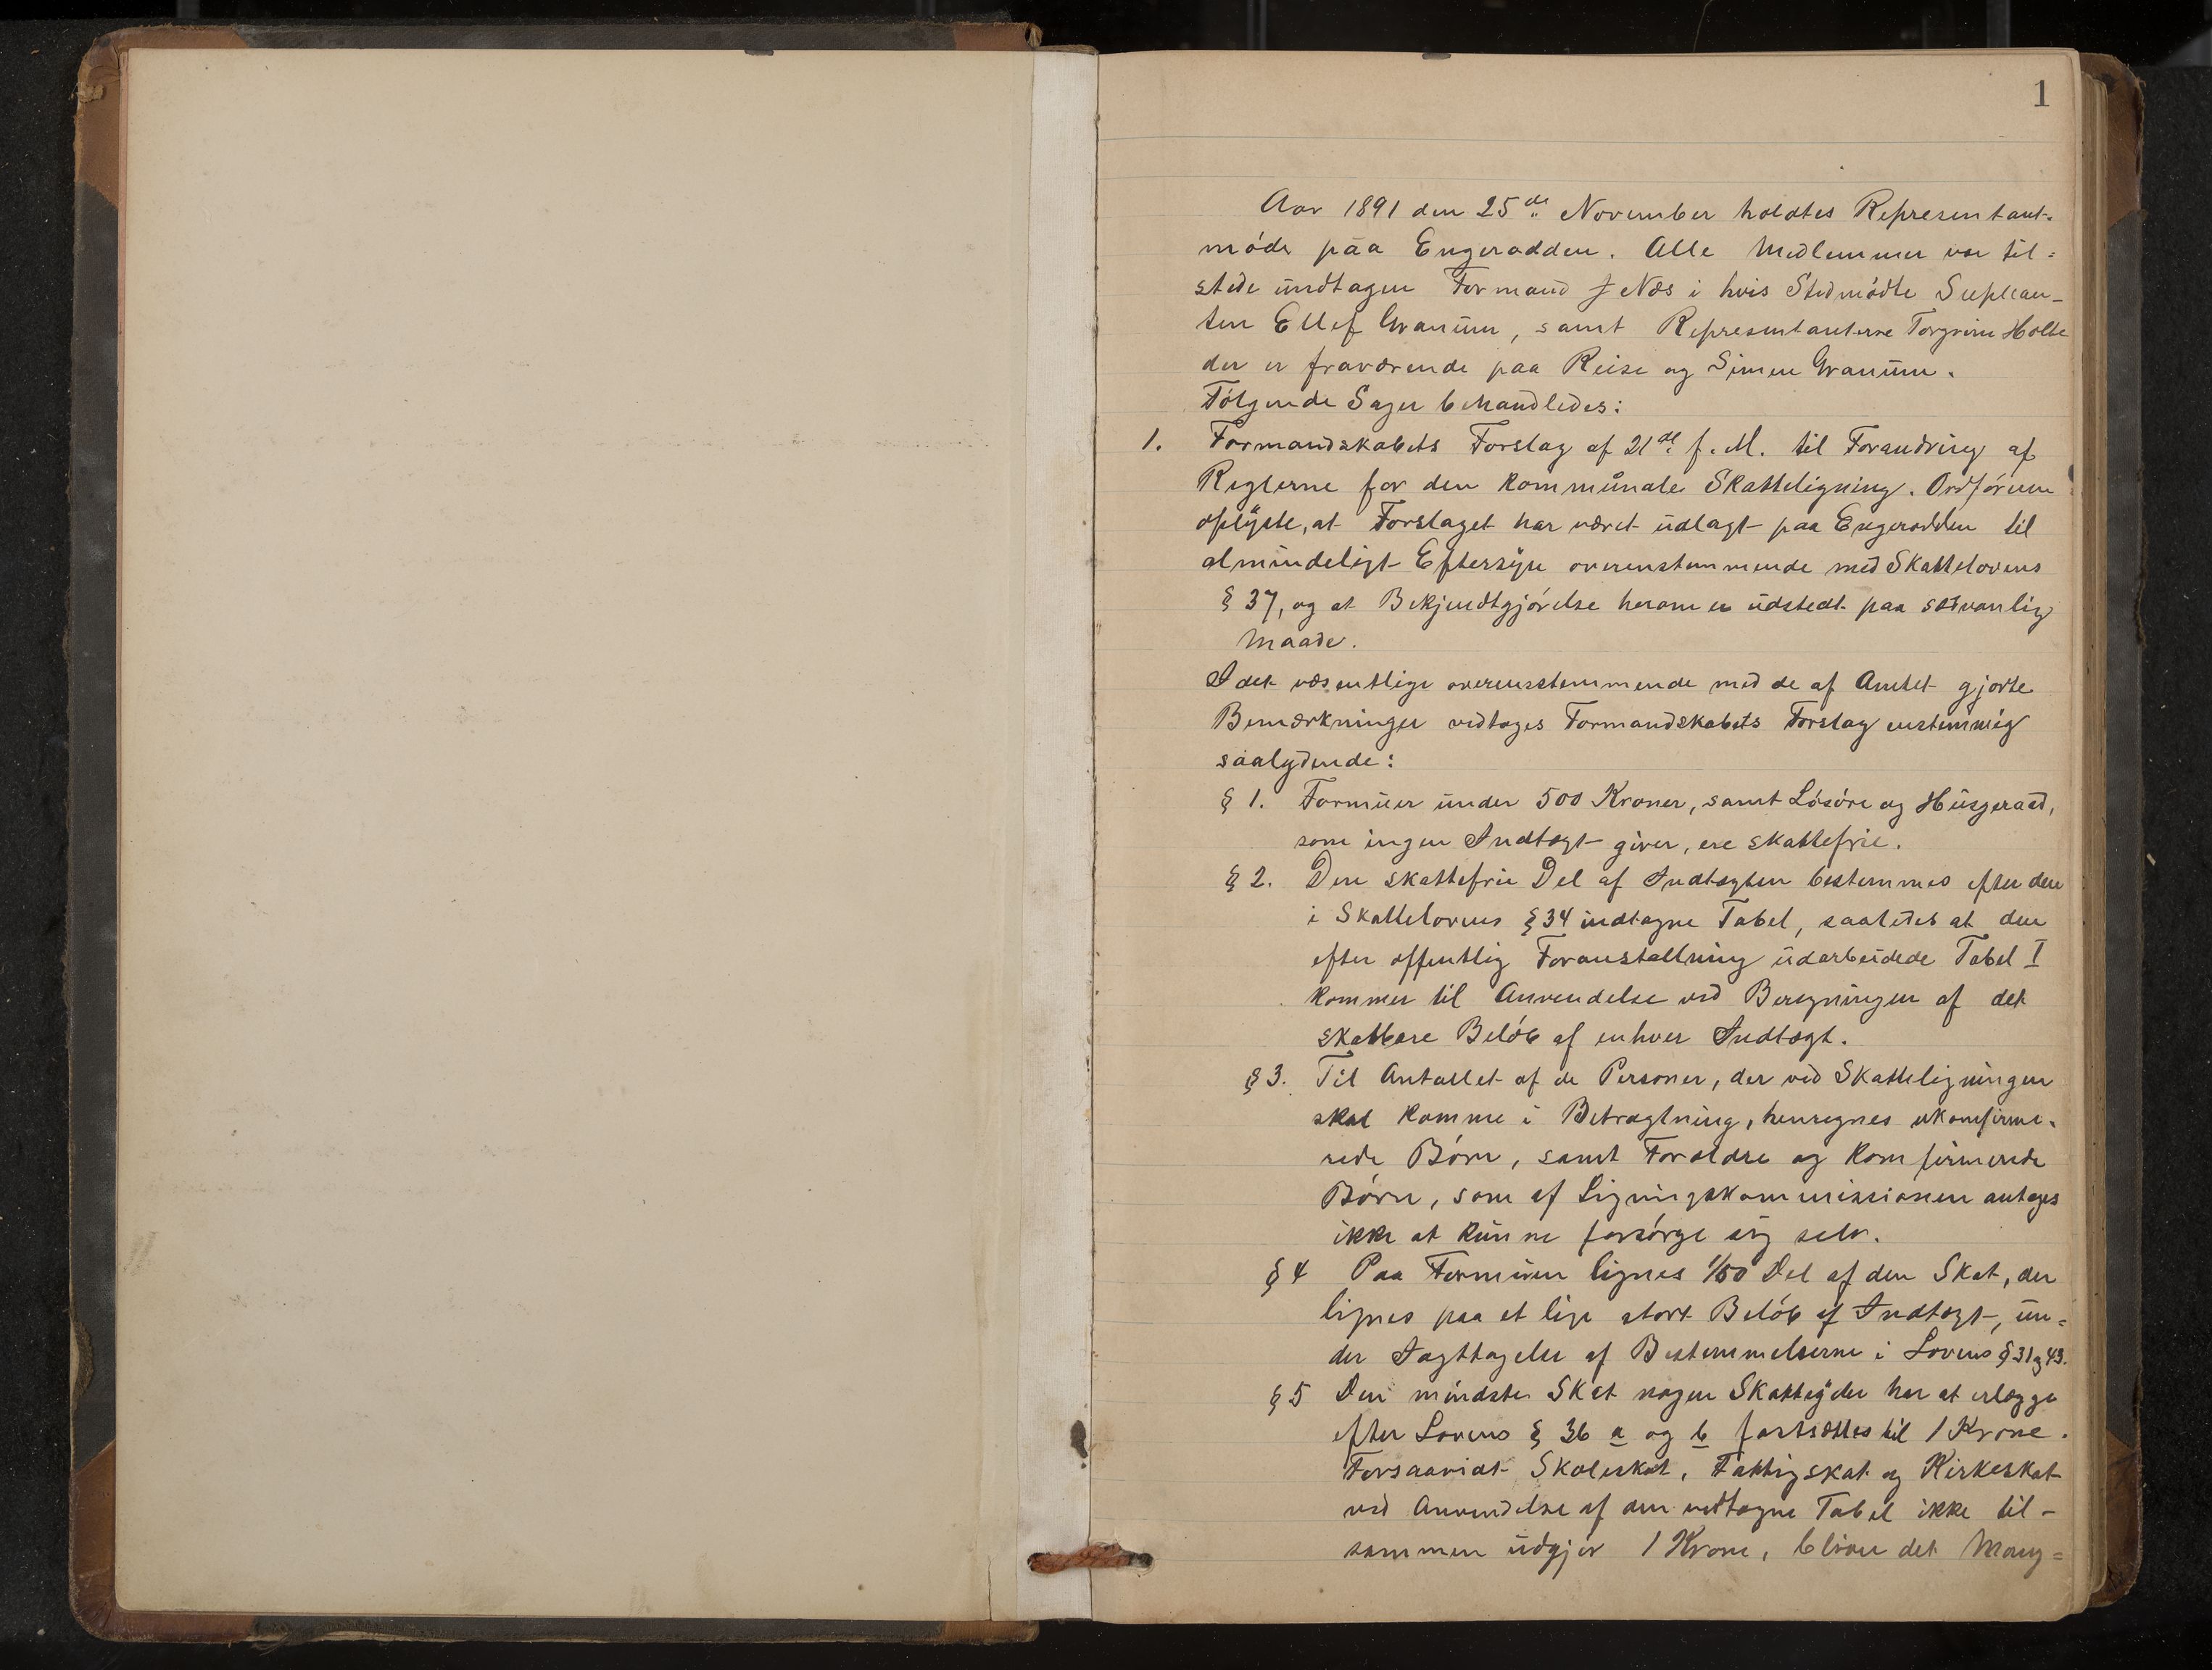 1
Aar 1891 den 25de November holdtes Representant-
møde paa Engerodden. Alle Medlemmer var til-
stede undtagen Formand J Næs i hvis Sted mødte Suplean-
ten Ellef Granum, samt Representanterne Torgrim Holte
der er fraværende paa Reise og Simen Granum.
Følgende Sager behandledes:
1. Formandskabets Forslag af 21de f. M. til Forandring af
Reglerne for den kommunale Skatteligning. Ordføreren
oplyste, at Forslaget har været udlagt paa Engerodden til
almindeligt Eftersyn overenstemmende med Skattelovens
§ 37, og at Bekjendtgjørelse herom er udstedt paa sædvanlig
Maade.
I det væsentlige overensstemmende med de af Amtet gjorte
Bemærkninger vedtoges Formandskabets Forslag enstemmig
saalydende:
§ 1. Formuer under 500 Kroner, samt Løsøre og Husgeraad,
som ingen Indtægt giver, ere skattefrie.
§ 2. Den skattefrie Del af Indtægten bestemmes efter den
i Skattelovens § 34 indtagne Tabel, saaledes at den
efter offentlig Foranstaltning udarbeidede Tabel I
kommer til Anvendelse ved Beregningen af det
skatbare Beløb af enhver Indtægt.
§ 3. Til Antallet af de Personer, der ved Skatteligningen
skal komme i Betragtning, henregnes ukonfirme-
rede Børn, samt Forældre og konfirmerede
Børn, som af Ligningskommissionen antages
ikke at kunne forsørge sig selv.
§ 4 Paa Formuen lignes 1/50 Del af den Skat, der
lignes paa et lige stort Beløb af Indtægt, un-
der Iagttagelse af Bestemmelserne i Lovens § 31 og 43.
§ 5 Den mindste Skat nogen Skatteyder har at erlægge
efter Lovens § 36 a og b fastsættes til 1 Krone.
Forsaavidt Skoleskat, Fattigskat og Kirkeskat
ved Anvendelse af den vedtagne Tabel ikke til-
sammen udgjør 1 Krone, bliver det Mang-